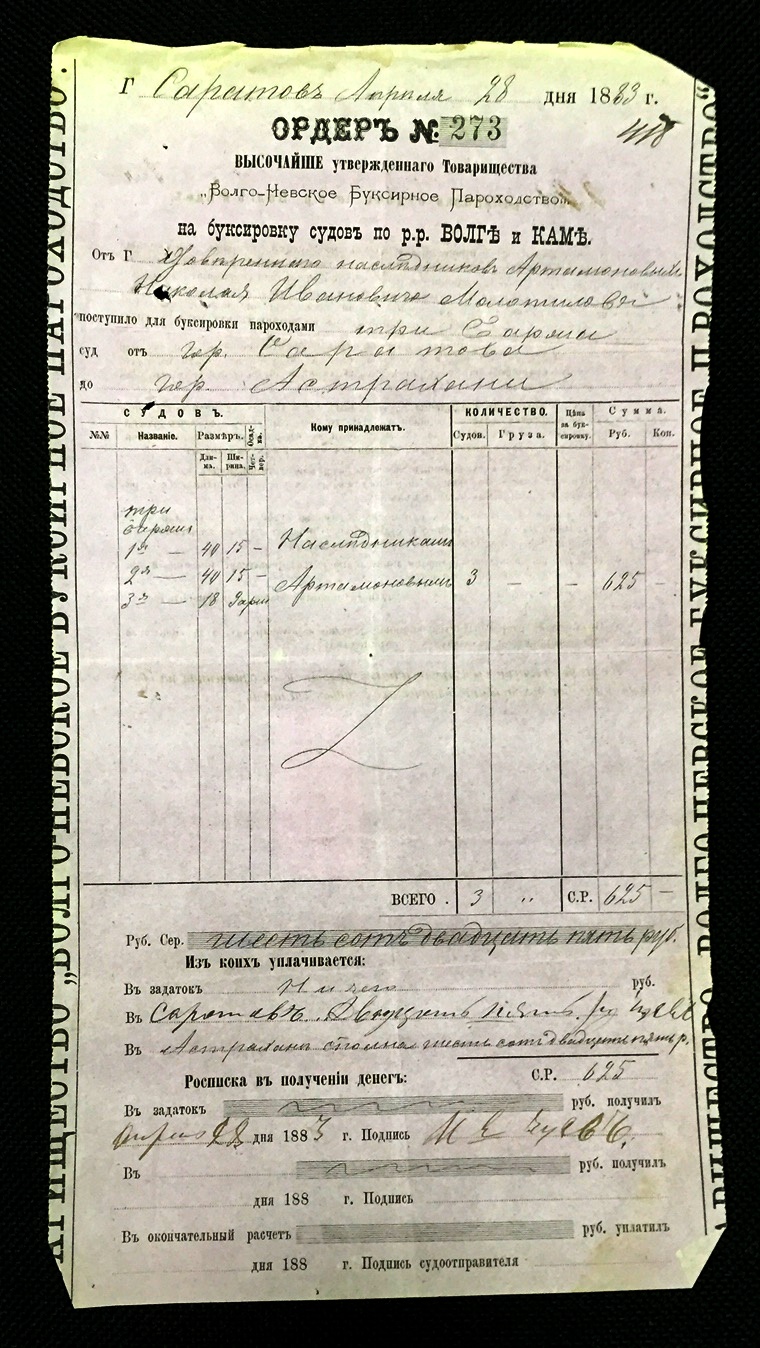 Г Саратовъ Апреля 28 дня 1883 г.
ОРДЕРЪ № 273
418
ВЫСОЧАЙШЕ утвержденнаго Товарищества
„Волго-Невское Буксирное Пароходство“
на буксировку судовъ по р.р. ВОЛГѢ и КАМѢ.
Отъ Г Довѣреннаго наслѣдниковъ Артамоновыхъ
Николая Ивановича Молотилова
поступило для буксировки пароходами три баржи
суд отъ гор. Саратова
до гор. Астрахани
СУДОВЪ. Кому принадлежатъ. КОЛИЧЕСТВО. Цѣна за буксировку. Сумма.
№№ Названіе. Размѣръ. Осадка. Судов. Груза. Руб. Коп.
Длина. Ширина. Четвер.
три
баржи
1я — 40 15 — Наслѣдникамъ
2я — 40 15 — Артамоновымъ 3 — — 625 —
3я — 18
ВСЕГО . 3 „ С.Р. 625 —
Руб. Сер. шесть сотъ двадцать пять руб.
Изъ коихъ уплачивается:
Въ задатокъ Ничего руб.
Въ Саратовъ.
Въ Астрахань сполна шесть сотъ двадцать пять р.
Росписка въ полученіи денегъ: С.Р. 625
Въ задатокъ руб. получилъ
апреля 28 дня 1883 г. Подпись
Въ руб. получилъ
дня 188 г. Подпись
Въ окончательный расчетъ руб. уплатилъ
дня 188 г. Подпись судоотправителя
„ВОЛГО-НЕВСКОЕ БУКСИРНОЕ ПАРОХОДСТВО.
ВОЛГО-НЕВСКОЕ БУКСИРНОЕ ПАРОХОДСТВО“